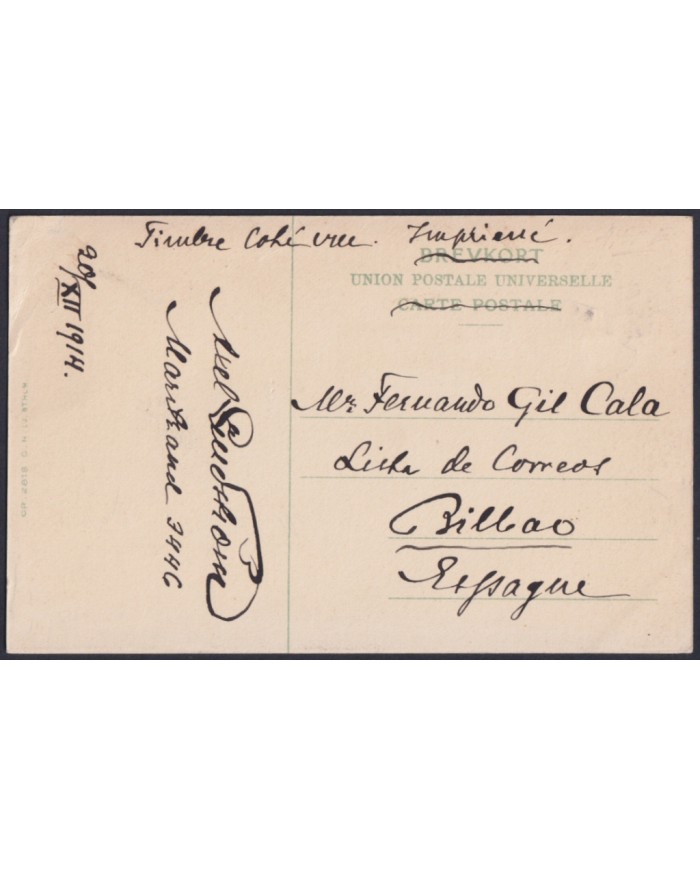 Timbre Coté vue. Imprimé.
BREVKORT
UNION POSTALE UNIVERSELLE
CARTE POSTALE
20/XII 1914.
Axel
Marstrand
Mr Fernando Gil Cala
Lista de Correos
Bilbao
Espagne